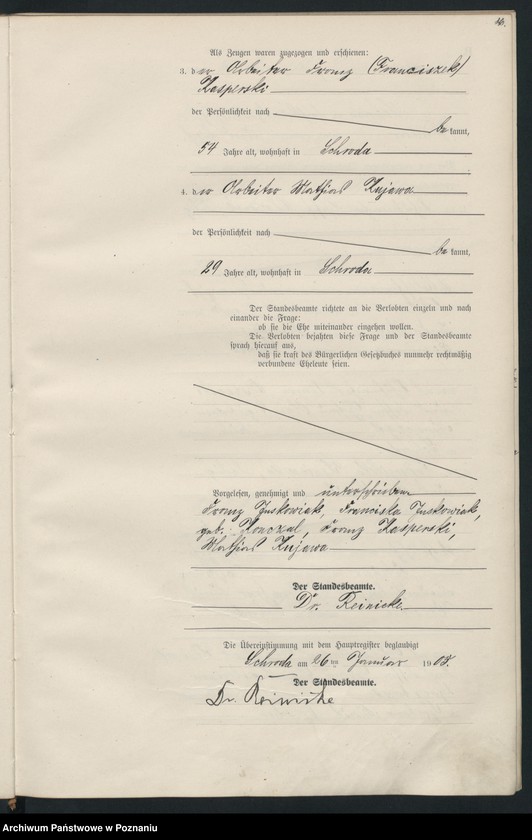 16.
Als Zeugen waren zugezogen und erschienen:
3. der Arbeiter Franz (Franciszek)
Kasperski
der Persönlichkeit nach
be kannt,
54 Jahre alt, wohnhaft in Schroda
4. der Arbeiter Mathias Kujawa
der Persönlichkeit nach
be kannt,
29 Jahre alt, wohnhaft in Schroda
Der Standesbeamte richtete an die Verlobten einzeln und nach
einander die Frage:
ob sie die Ehe miteinander eingehen wollen.
Die Verlobten bejahten diese Frage und der Standesbeamte
sprach hierauf aus,
daß sie kraft des Bürgerlichen Gesetzbuches nunmehr rechtmäßig
verbundene Eheleute seien.
Vorgelesen, genehmigt und unterschrieben
Franz Juskowiak, Franciska Juskowiak,
geb. Konczal, Franz Kasperski,
Mathias Kujawa
Der Standesbeamte.
Dr. Reinicke
Die Übereinstimmung mit dem Hauptregister beglaubigt
Schroda am 26 ten Januar 190
Der Standesbeamte.
Dr. Reinicke
Archiwum Państwowe w Poznaniu